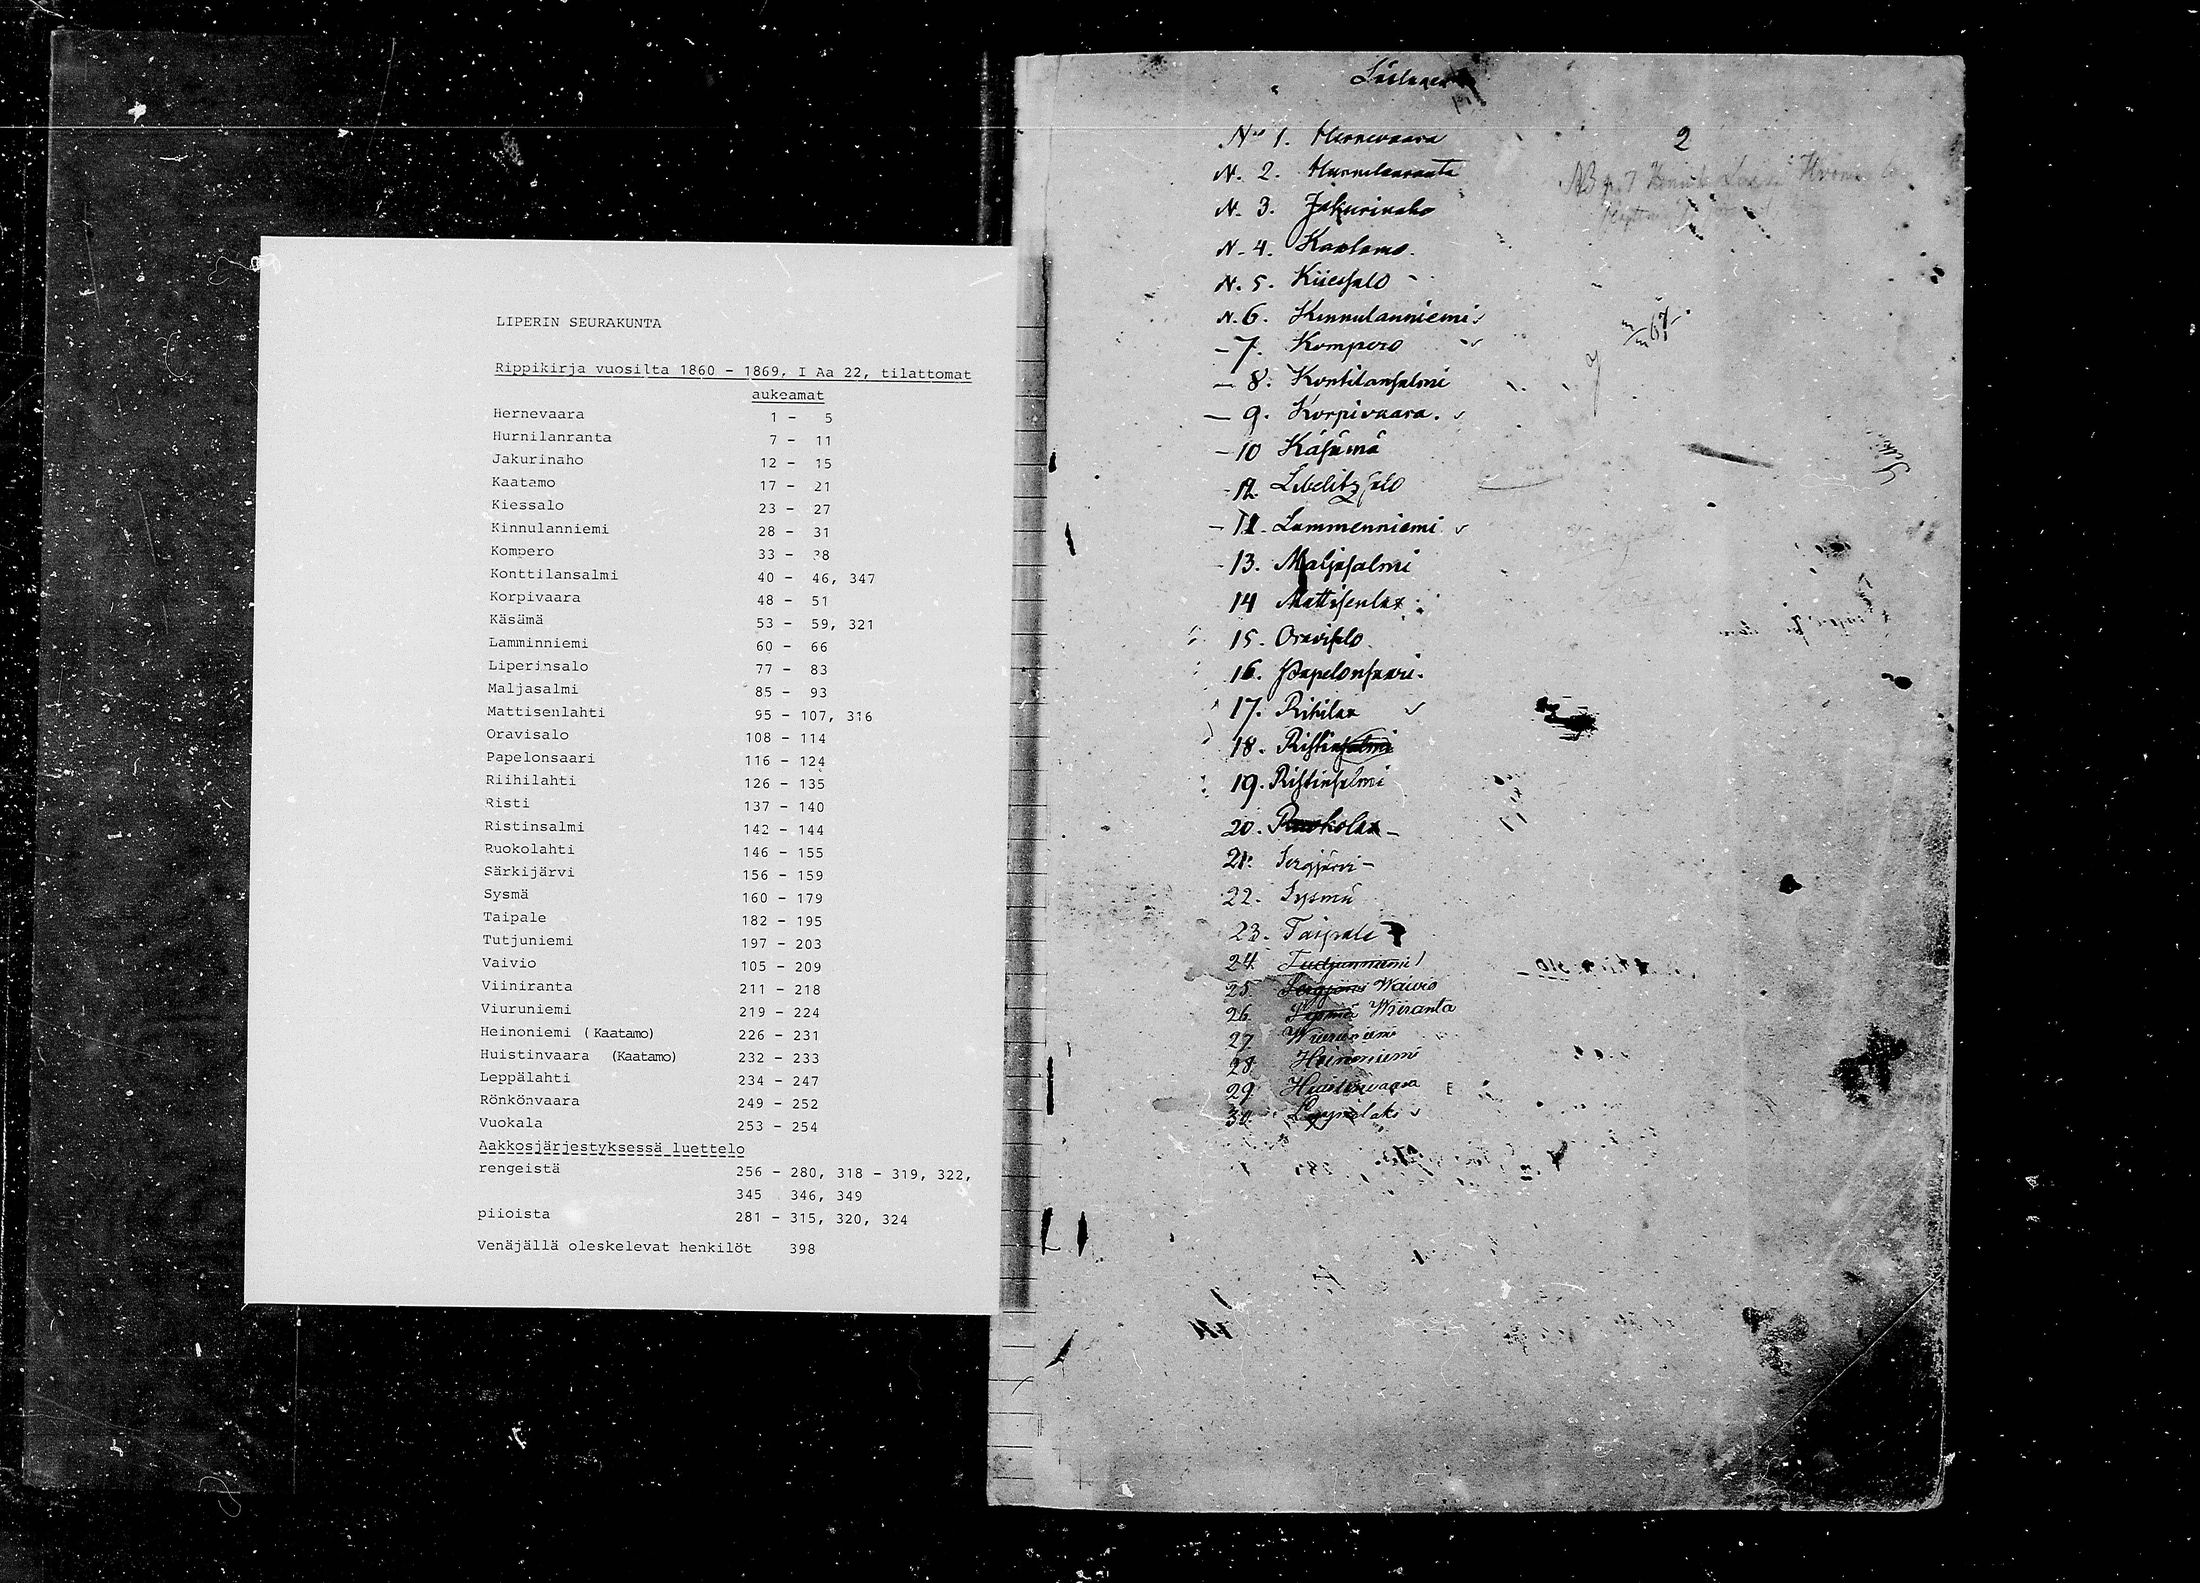 LIPERIN SEURAKUNTA
Rippikirja vuosilta 1860 - 1869, I Aa 22, tilattomat
aukeamat
Hernevaara 1 - 5
Hurnilanranta 7 - 11
Jakurinaho 12 - 15
Kaatamo 17 - 21
Kiessalo 23 - 27
Kinnulanniemi 28 - 31
Kompero 33 - 38
Konttilansalmi 40 - 46, 347
Korpivaara 48 - 51
Käsämä 53 - 59, 321
Lamminniemi 60 - 66
Liperinsalo 77 - 83
Maljasalmi 85 - 93
Mattisenlahti 95 - 107, 316
Oravisalo 108 - 114
Papelonsaari 116 - 124
Riihilahti 126 - 135
Risti 137 - 140
Ristinsalmi 142 - 144
Ruokolahti 146 - 155
Särkijärvi 156 - 159
Sysmä 160 - 179
Taipale 182 - 195
Tutjuniemi 197 - 203
Vaivio 105 - 209
Viiniranta 211 - 218
Viuruniemi 219 - 224
Heinoniemi (Kaatamo) 226 - 231
Huistinvaara (Kaatamo) 232 - 233
Leppälahti 234 - 247
Rönkönvaara 249 - 252
Vuokala 253 - 254
Aakkosjärjestyksessä luettelo
rengeistä 256 - 280, 318 - 319, 322,
345 346, 349
piioista 281 - 315, 320, 324
Venäjällä oleskelevat henkilöt 398
No 1. Hernevaara
2
N. 2. Hurnilanranta
N. 3. Jakurinaho
N. 4. Kaatamo.
N. 5. Kiessalo
N. 6. Kinnulanniemi
- 7. Kompero
- 8. Kontilansalmi
- 9. Korpivaara.
- 10 Käsämä
- 12. Libelitzsalo
- 11. Lammenniemi
- 13. Maljasalmi
14 Mattisenlax
15. Oravisalo
16. Papelonsaari.
17. Rihilax
18. Ristinsalmi
19. Ristinsalmi
20. Ruokolax -
21. Sergjärvi -
22. Sysmä
23. Taipale
24. Tudjunniemi
25. Sergjärvi Waivio
26. Sysmä Wiiranta
27. Wiuruniemi
28. Heinoniemi
29. Huistinvaara
30. Leppälaks